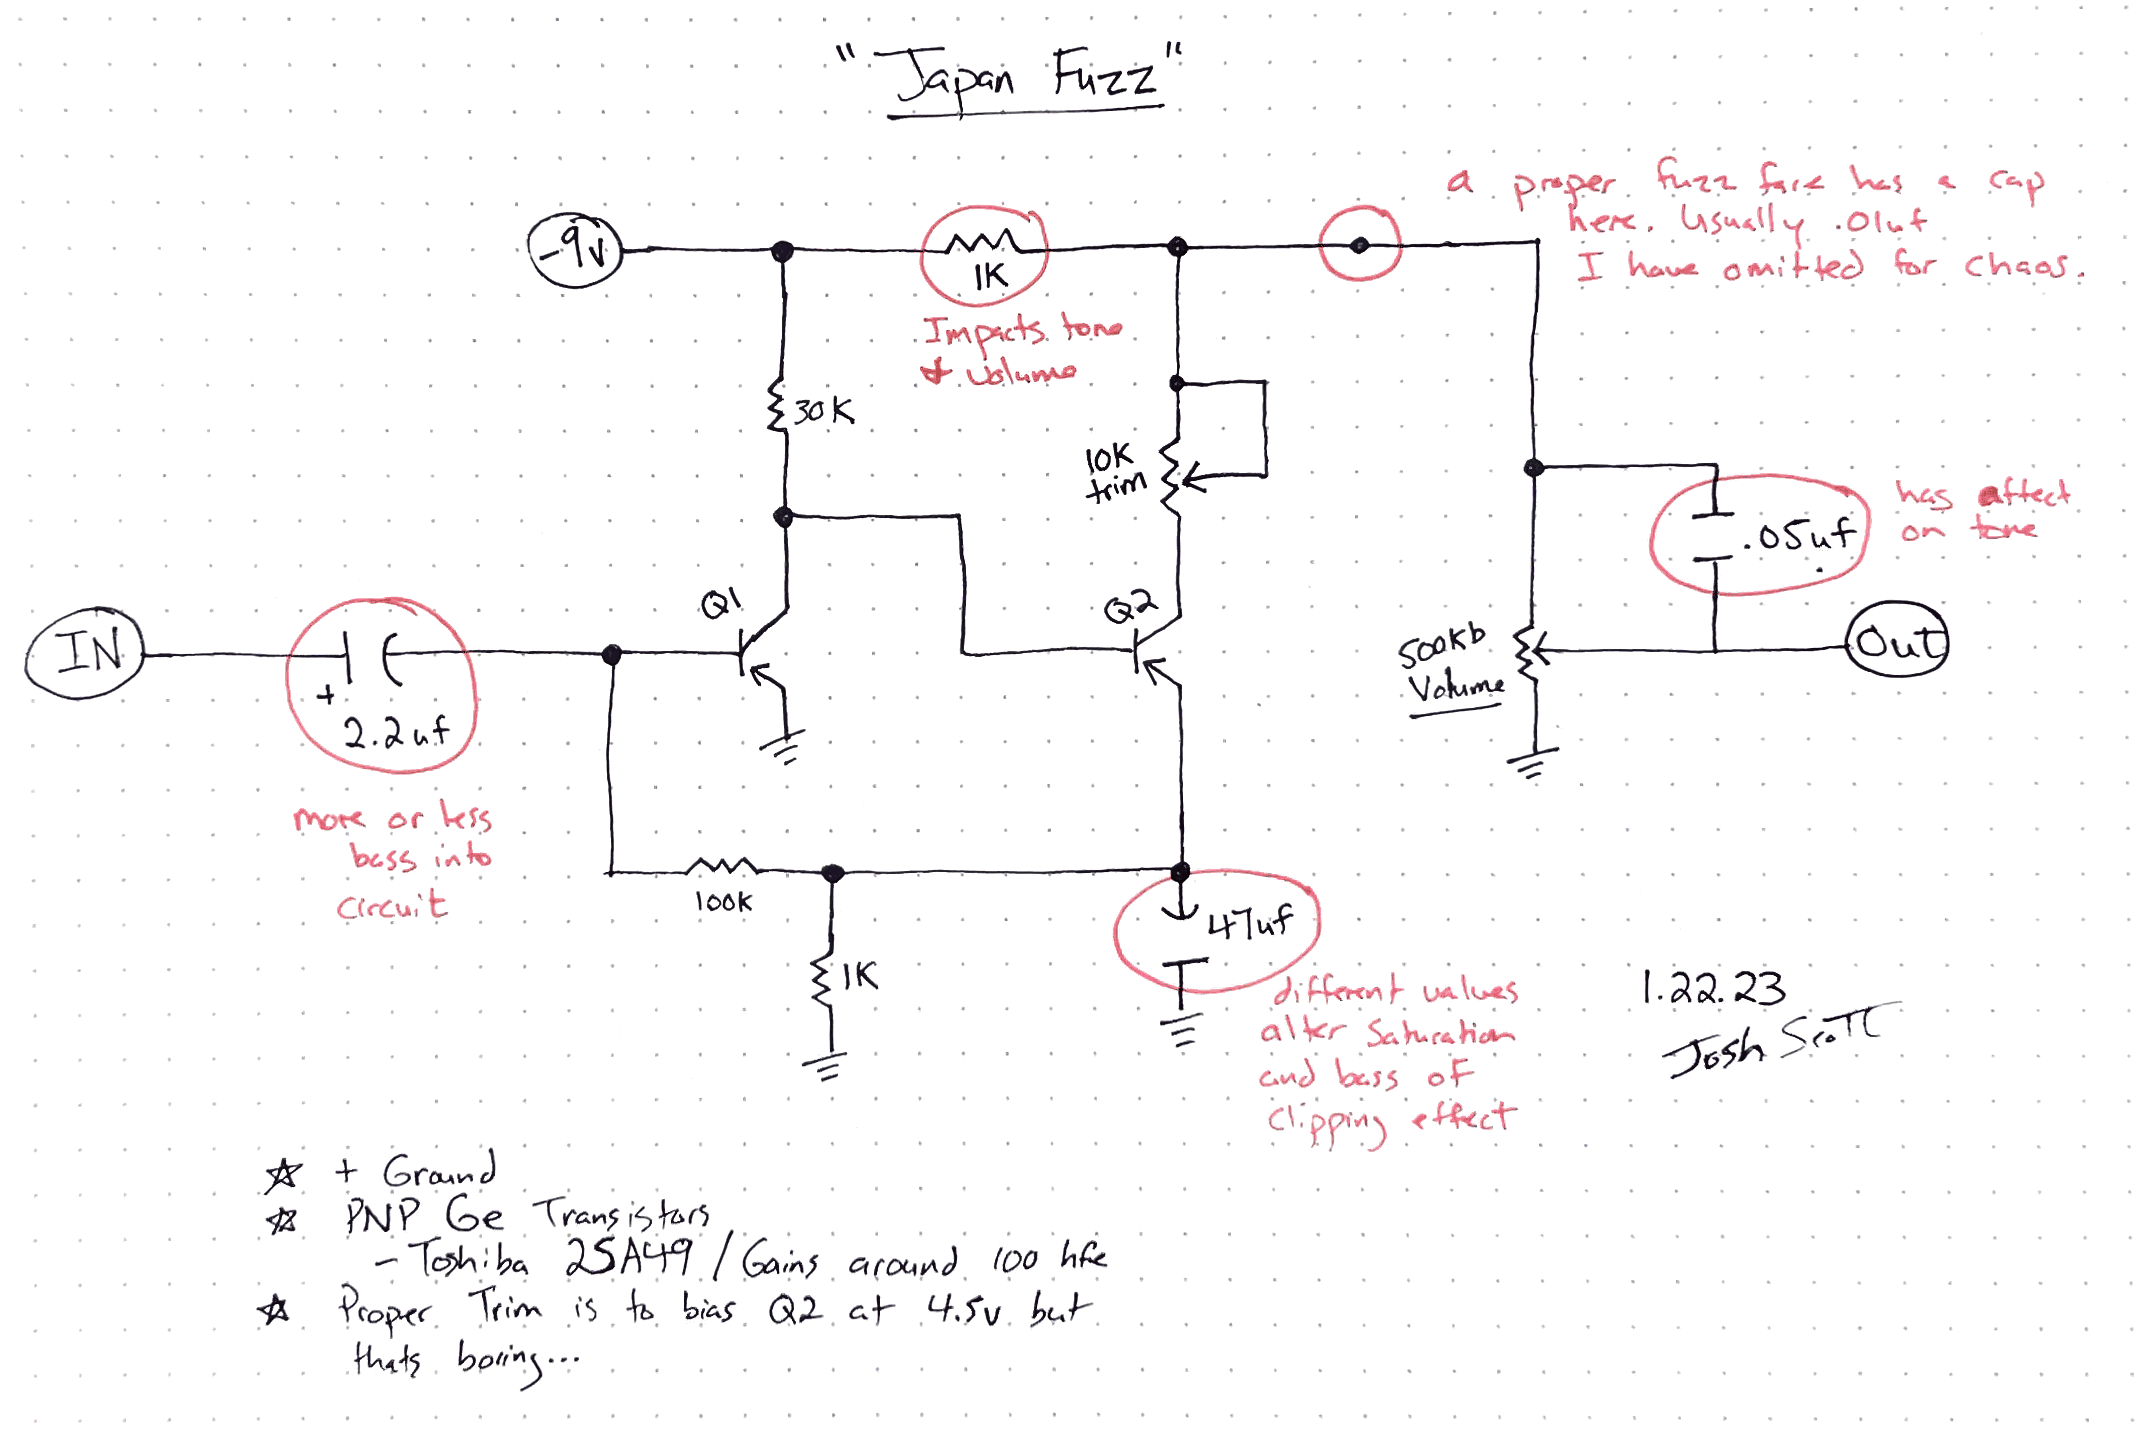 "Japan Fuzz"
-9v
1K
Impacts tone
& volume
a proper fuzz face has a cap
here. Usually .01uf
I have omitted for chaos.
30K
10K
trim
.05uf
has affect
on tone
Q1
Q2
IN
+
2.2uf
more or less
bass into
circuit
500Kb
Volume
Out
100K
1K
47uf
different values
alter saturation
and bass of
clipping effect
1.22.23
Josh Scott
☆ + Ground
☆ PNP Ge Transistors
- Toshiba 2SA49 / Gains around 100 hfe
☆ Proper Trim is to bias Q2 at 4.5v but
thats boring...